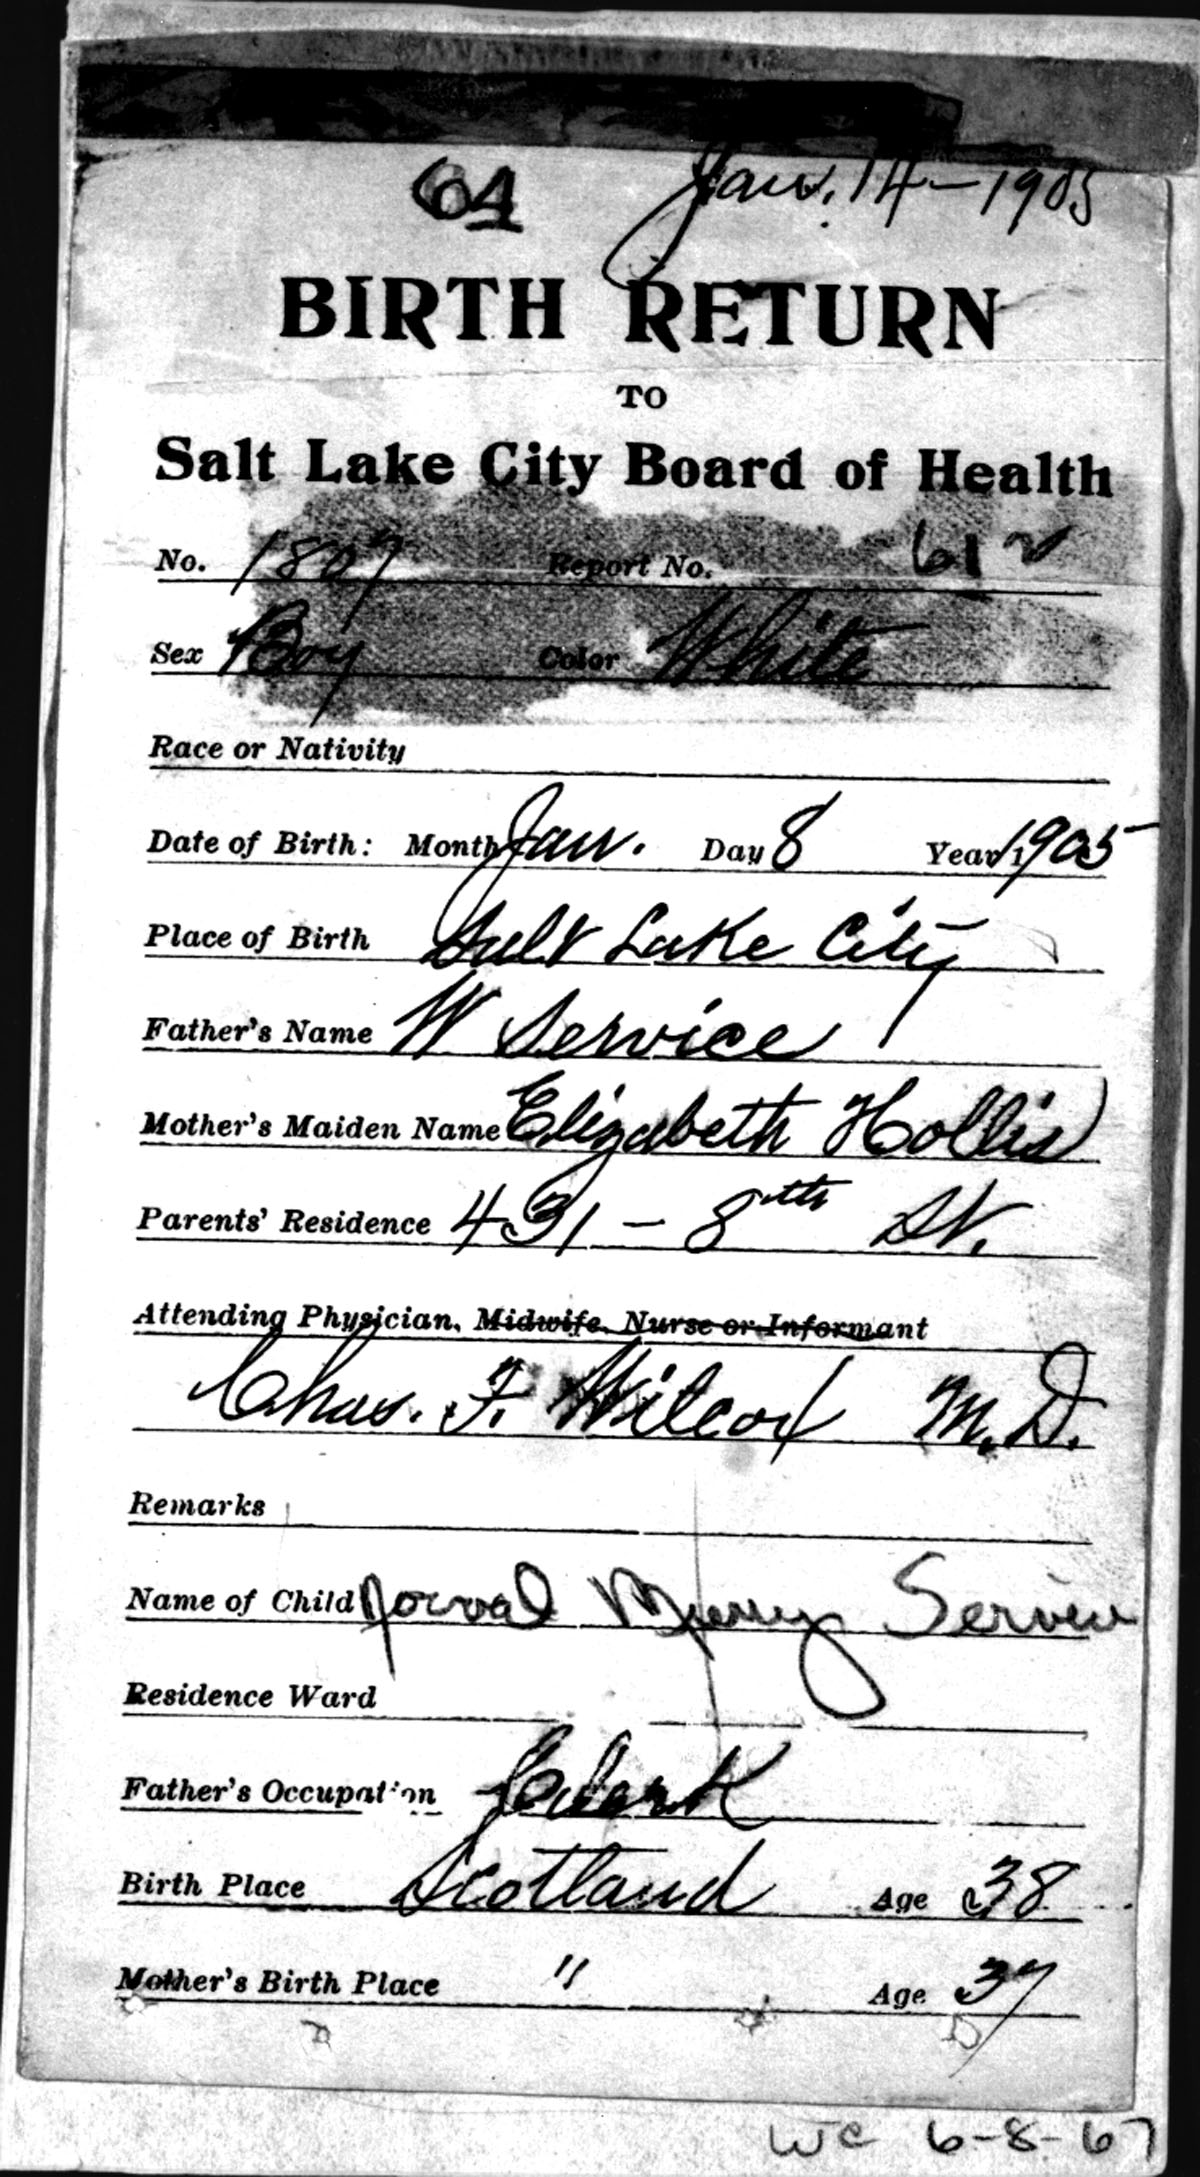 64 Jan. 14-1905
BIRTH RETURN
TO
Salt Lake City Board of Health
No. 1807 Report No. 612
Sex Boy Color White
Race or Nativity
Date of Birth: Month Jan. Day 8 Year 1905
Place of Birth Salt Lake City
Father's Name W Service
Mother's Maiden Name Elizabeth Hollis
Parents' Residence 431 - 8th St.
Attending Physician, Midwife, Nurse or Informant
Chas. F. Wilcox M.D.
Remarks
Name of Child Norval Service
Residence Ward
Father's Occupation Clerk
Birth Place Scotland Age 38
Mother's Birth Place " Age 37
WC 6-8-67